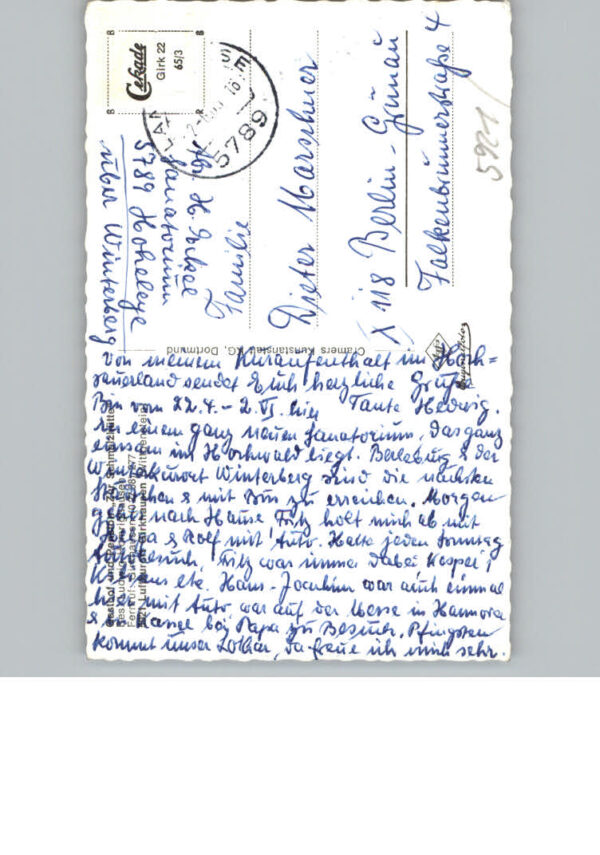 Cekade
Girk 22
65/3
B
B
B
B
5789
Abs. H. Erkel
Sanatorium
5789 Hoheleye
über Winterberg
Familie
Dieter Marschner
X 118 Berlin-Grünau
Falkenbrunnerstraße 4
5921
Cramers Kunstanstalt KG, Dortmund
Von meinem Kuraufenthalt im Hoch=
sauerland sendet Euch herzliche Grüße
Bin vom 22.4. - 2. VI. hier Tante Hedwig.
in einem ganz neuen Sanatorium, das ganz
einsam im Hochwald liegt. Berleburg & der
Winterkurort Winterberg sind die nächsten
& mit Bus zu erreichen. Morgen
geht's nach Hause Fritz holt mich ab mit
& Rolf mit Auto. Hatte jeden Sonntag
Autobesuch, Fritz war immer dabei
etc. Hans-Joachim war auch einmal
hier mit Auto, war auf der Messe in Hannover
& bei Papa zu Besuch. Pfingsten
kommt unser Lothar, da freue ich mich sehr.